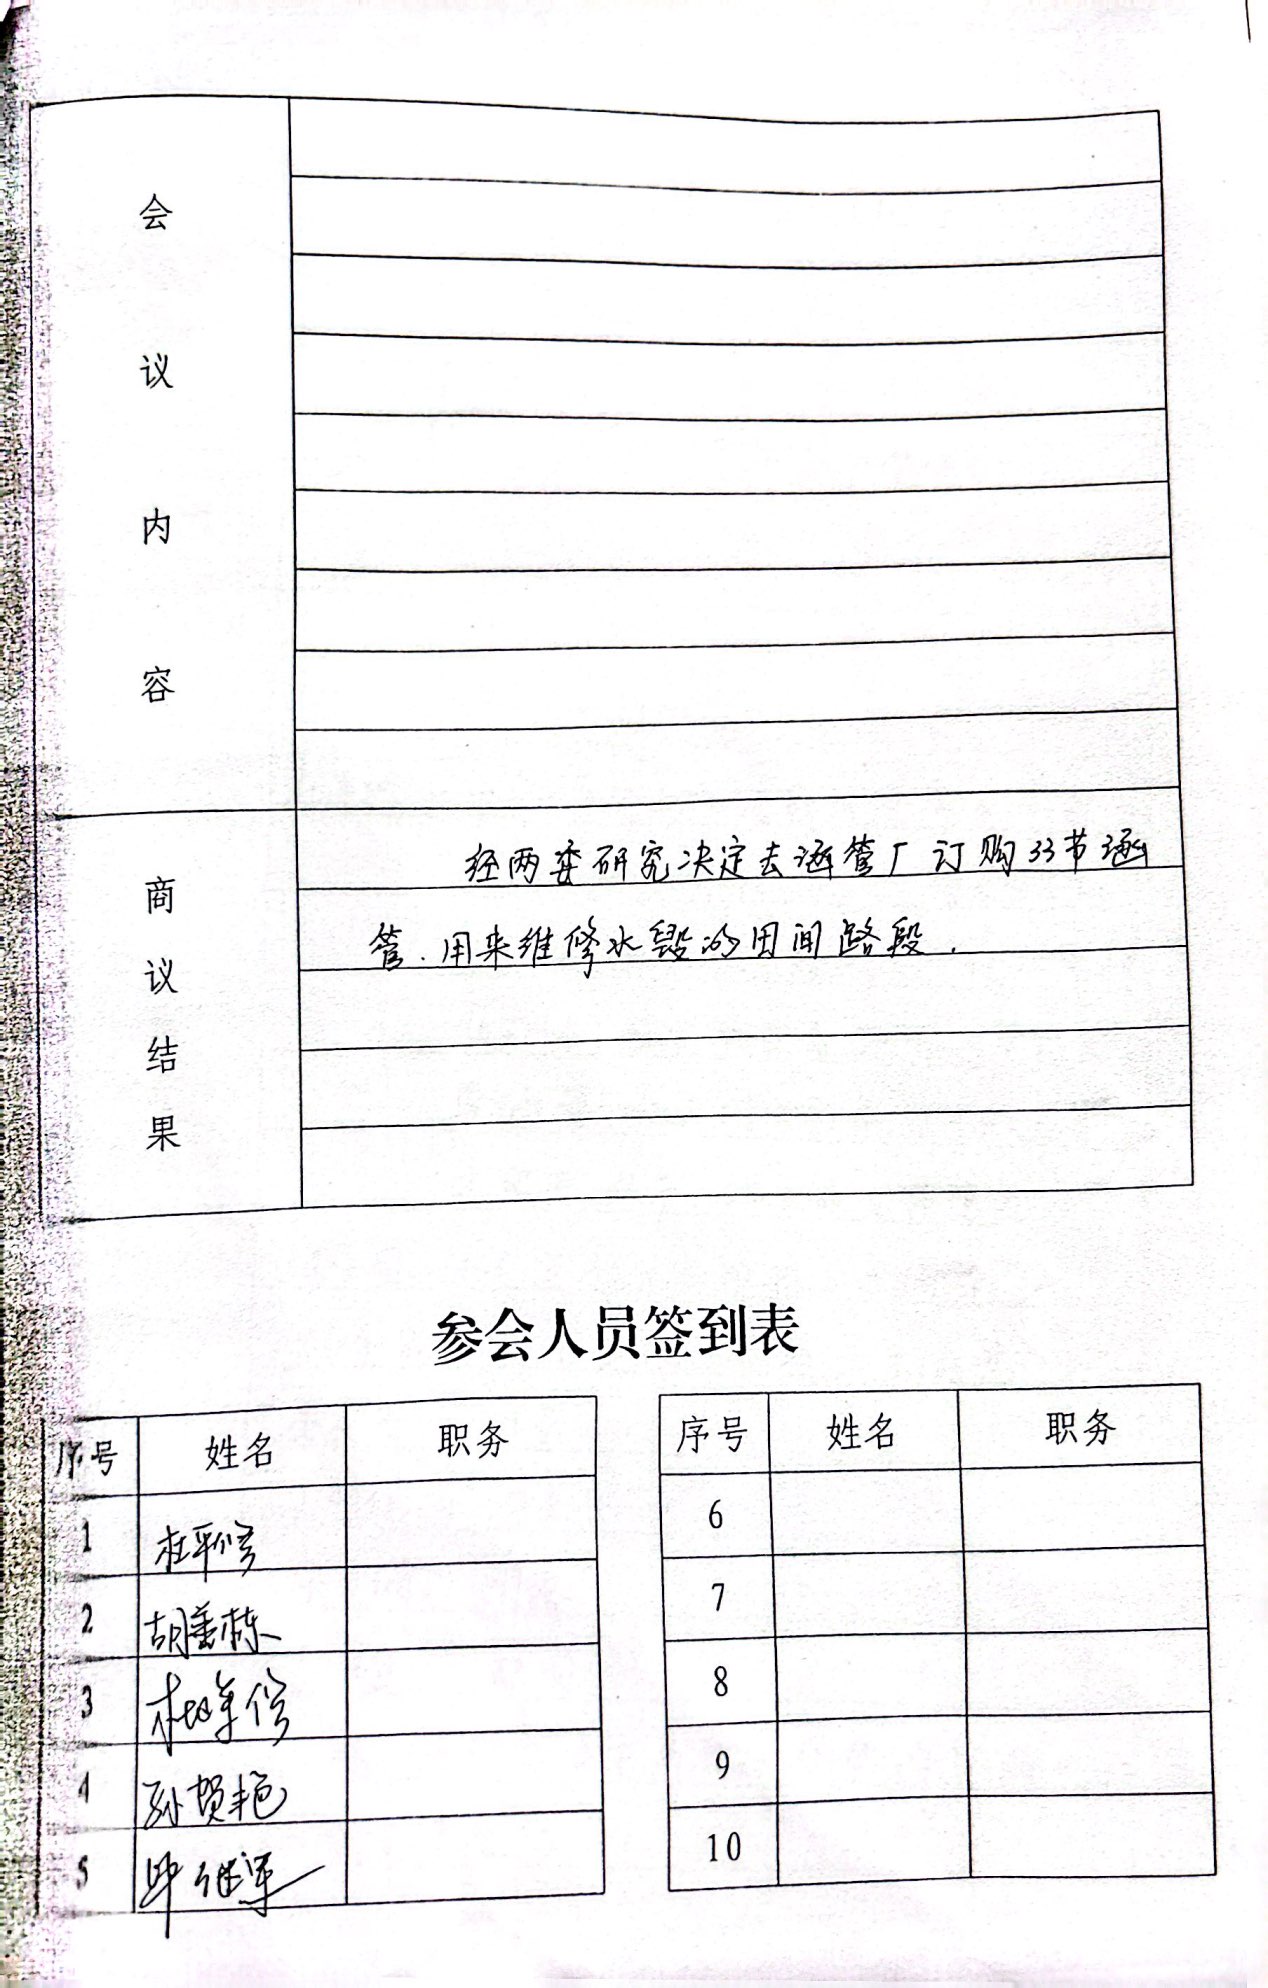 会
议
内
容
商
议
结
果
经两委研究决定去涵管厂订购33节涵
管.用来维修水毁的田间路段.
参会人员签到表
序号 姓名 职务 序号 姓名 职务
1 杜平修 6
2 胡善栋 7
3 8
4 孙贺艳 9
5 毕继军 10